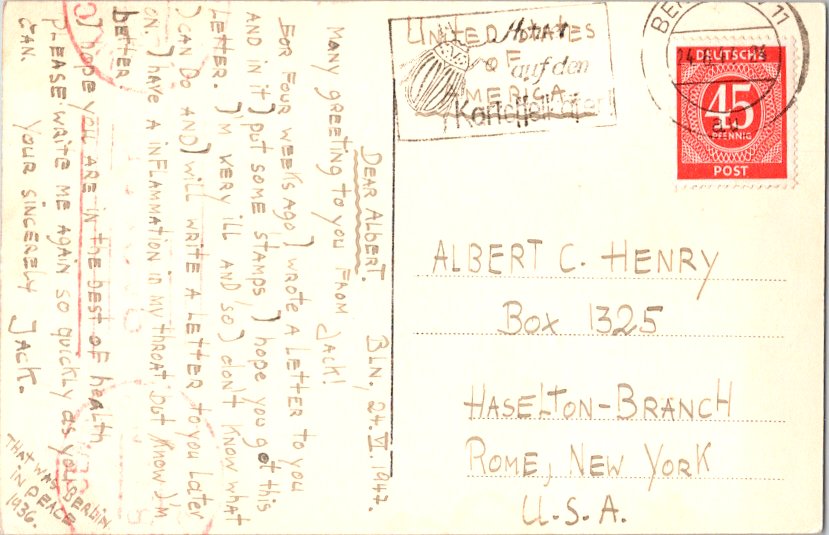 UNITED STATES
OF
AMERICA.
Achtet
auf den
Kartoffelkäfer!
BERLIN
11
24.
DEUTSCHE
45
PFENNIG
POST
au
BLN, 24.VI.1947.
DEAR ALBERT.
MANY GREETING TO YOU FROM JACK!
FOR FOUR WEEKS AGO I WROTE A LETTER TO YOU
AND IN IT I PUT SOME STAMPS, I HOPE YOU GOT THIS
LETTER. I'M VERY ILL AND SO I DON'T KNOW WHAT
I CAN DO AND I WILL WRITE A LETTER TO YOU LATER
ON. I HAVE A INFLAMMATION IN MY THROAT, BUT KNOW I'M
BETTER
I HOPE YOU ARE IN THE BEST OF HEALTH
PLEASE WRITE ME AGAIN SO QUICKLY AS YOU
CAN. YOUR SINCERELY JACK.
THAT WAS BERLIN
IN PEACE
1936.
ALBERT C. HENRY
BOX 1325
HASELTON-BRANCH
ROME, NEW YORK
U.S.A.